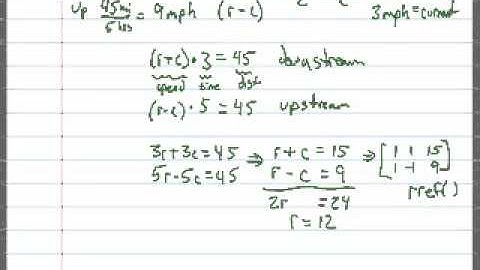 up 45mi/5hrs = 9mph (r-c)
3mph = current
(r+c)·3 = 45 downstream
speed time dist
(r-c)·5 = 45 upstream
3r+3c=45 ⇒ r+c=15 ⇒ [1 1 15
5r-5c=45 r-c=9 1 -1 9]
2r =24 rref()
r=12